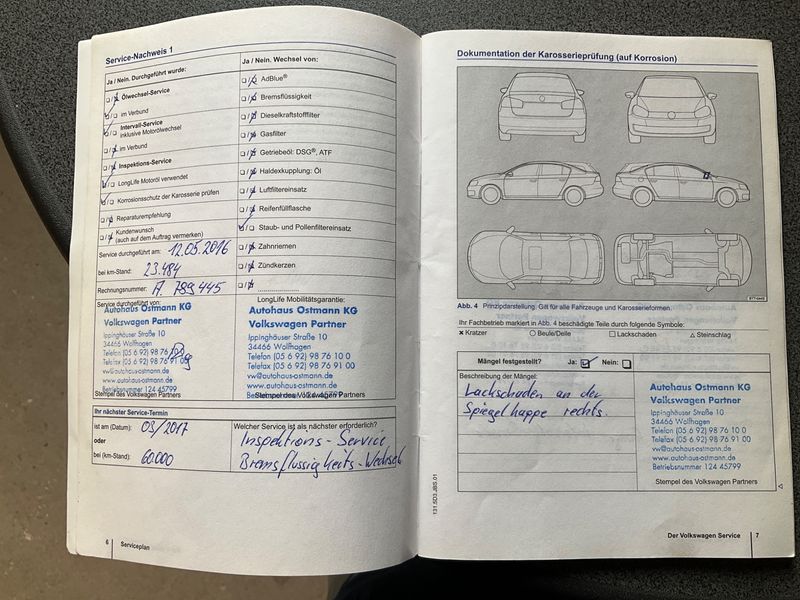 Service-Nachweis 1
Ja / Nein. Durchgeführt wurde:
Ölwechsel-Service
im Verbund
Intervall-Service
inklusive Motorölwechsel
im Verbund
Inspektions-Service
LongLife Motoröl verwendet
Korrosionsschutz der Karosserie prüfen
Reparaturempfehlung
Kundenwunsch
(auch auf dem Auftrag vermerken)
Service durchgeführt am: 12.05.2016
bei km-Stand: 23.484
Rechnungsnummer: A 789445
Service durchgeführt von:
Autohaus Ostmann KG
Volkswagen Partner
Ippinghäuser Straße 10
34466 Wolfhagen
Telefon (05 6 92) 98 76 10 0
Telefax (05 6 92) 98 76 91 00
vw@autohaus-ostmann.de
www.autohaus-ostmann.de
Betriebsnummer 124 45799
Stempel des Volkswagen Partners
Ja / Nein. Wechsel von:
AdBlue®
Bremsflüssigkeit
Dieselkraftstofffilter
Gasfilter
Getriebeöl: DSG®, ATF
Haldexkupplung: Öl
Luftfiltereinsatz
Reifenfüllflasche
Staub- und Pollenfiltereinsatz
Zahnriemen
Zündkerzen
LongLife Mobilitätsgarantie:
Autohaus Ostmann KG
Volkswagen Partner
Ippinghäuser Straße 10
34466 Wolfhagen
Telefon (05 6 92) 98 76 10 0
Telefax (05 6 92) 98 76 91 00
vw@autohaus-ostmann.de
www.autohaus-ostmann.de
Stempel des Volkswagen Partners
Ihr nächster Service-Termin
ist am (Datum): 03/2017
oder
bei (km-Stand): 60.000
Welcher Service ist als nächster erforderlich?
Inspektions-Service
Bremsflüssigkeits-Wechsel
6 Serviceplan
Dokumentation der Karosserieprüfung (auf Korrosion)
Abb. 4 Prinzipdarstellung. Gilt für alle Fahrzeuge und Karosserieformen.
Ihr Fachbetrieb markiert in Abb. 4 beschädigte Teile durch folgende Symbole:
× Kratzer ○ Beule/Delle □ Lackschaden △ Steinschlag
Mängel festgestellt? Ja: Nein:
Beschreibung der Mängel:
Lackschaden an der
Spiegelkappe rechts.
Autohaus Ostmann KG
Volkswagen Partner
Ippinghäuser Straße 10
34466 Wolfhagen
Telefon (05 6 92) 98 76 10 0
Telefax (05 6 92) 98 76 91 00
vw@autohaus-ostmann.de
www.autohaus-ostmann.de
Betriebsnummer 124 45799
Stempel des Volkswagen Partners
131.5D3.JBS.01
Der Volkswagen Service 7